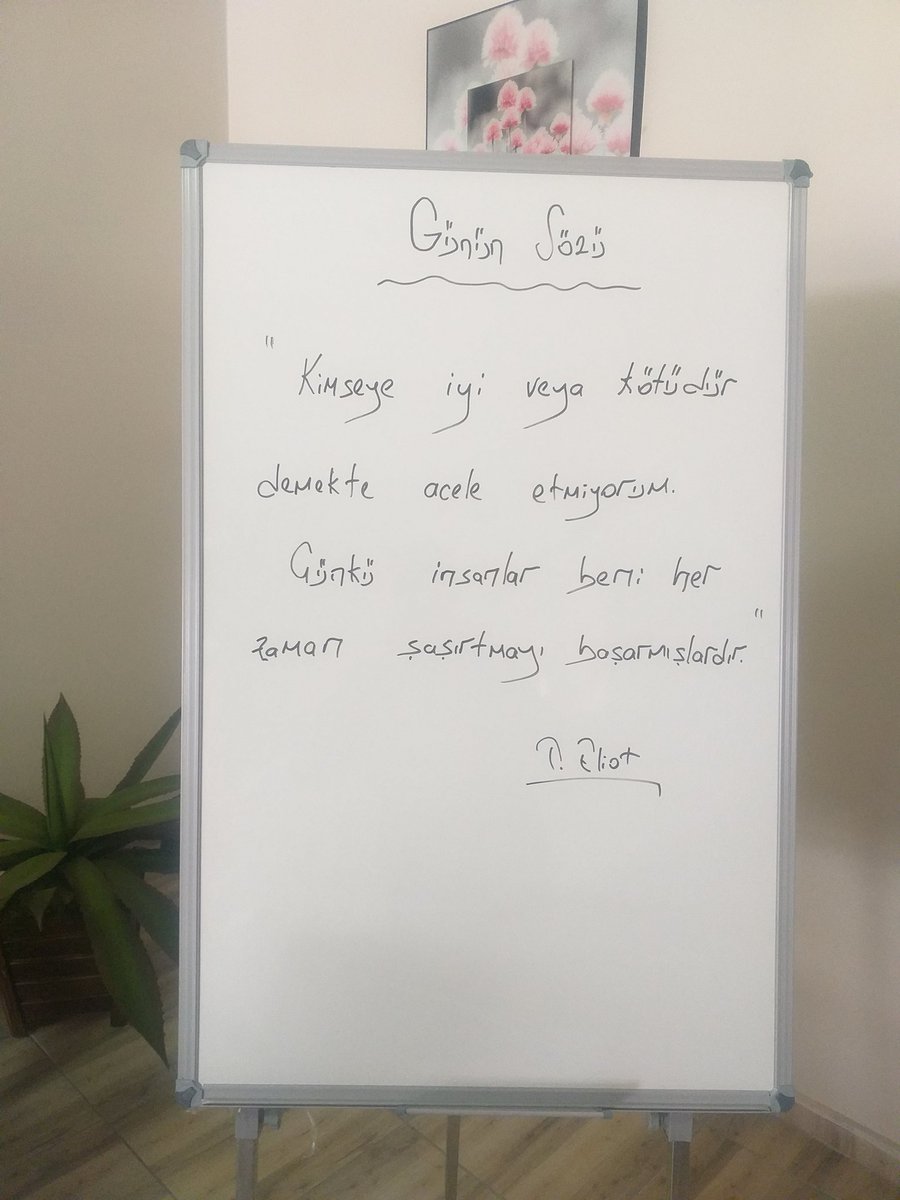 Günün Sözü
" Kimseye iyi veya kötüdür
demekte acele etmiyorum.
Günkü insanlar beni her
zaman şaşırtmayı başarmışlardır. "
T. Eliot